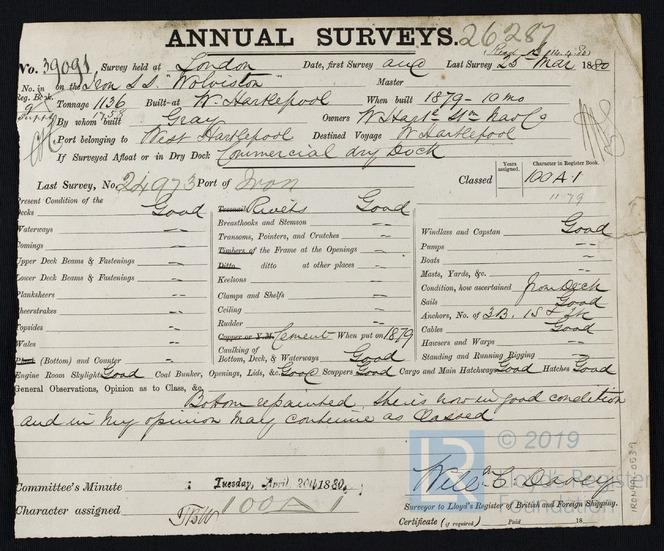 ANNUAL SURVEYS. 26287
No. 39091 Survey held at London Date, first Survey and Last Survey 25 Mar 1880
No. in Reg. Book. on the Iron S.S. "Wolviston" Master
Tonnage 1136 Built at W. Hartlepool When built 1879-10 mo
By whom built Gray Owners W Hartl Stm Nav Co
Port belonging to West Hartlepool Destined Voyage W Hartlepool
If Surveyed Afloat or in Dry Dock Commercial dry Dock
Last Survey, No 24973 Port of Iron Classed Years assigned. Character in Register Book. 100A1
11.79
Present Condition of the
Decks Good
Waterways "
Comings "
Upper Deck Beams & Fastenings "
Lower Deck Beams & Fastenings "
Planksheers "
Sheerstrakes "
Topsides "
Wales "
(Bottom) and Counter "
Treenail Rivets Good
Breasthooks and Stemson "
Transoms, Pointers, and Crutches "
Timbers of the Frame at the Openings "
Ditto ditto at other places "
Keelsons "
Clamps and Shelfs "
Ceiling "
Rudder "
Copper or Y.M. Cement When put on 1879
Caulking of Bottom, Deck, & Waterways Good
Windlass and Capstan Good
Pumps "
Boats "
Masts, Yards, &c. "
Condition, how ascertained from Deck
Sails Good
Anchors, No. of 3B. 1S &
Cables Good
Hawsers and Warps "
Standing and Running Rigging "
Engine Room Skylights Good Coal Bunker, Openings, Lids, &c. Good Scuppers Good Cargo and Main Hatchways Good Hatches Good
General Observations, Opinion as to Class, &c.
Bottom repainted, she is now in good condition
and in my opinion may continue as Classed
© 2019
Lloyd's Register
Foundation
LR
Willm C. Davey
Committee's Minute Tuesday, April 20th 1880.
Surveyor to Lloyd's Register of British and Foreign Shipping.
Character assigned 100A1
Certificate (if required) Paid 18
IRON982-0539